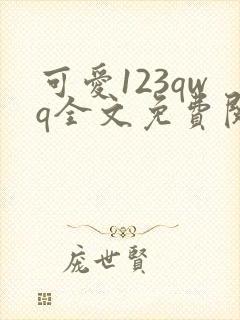 可愛123qw
q全文免費閱
庞世賢